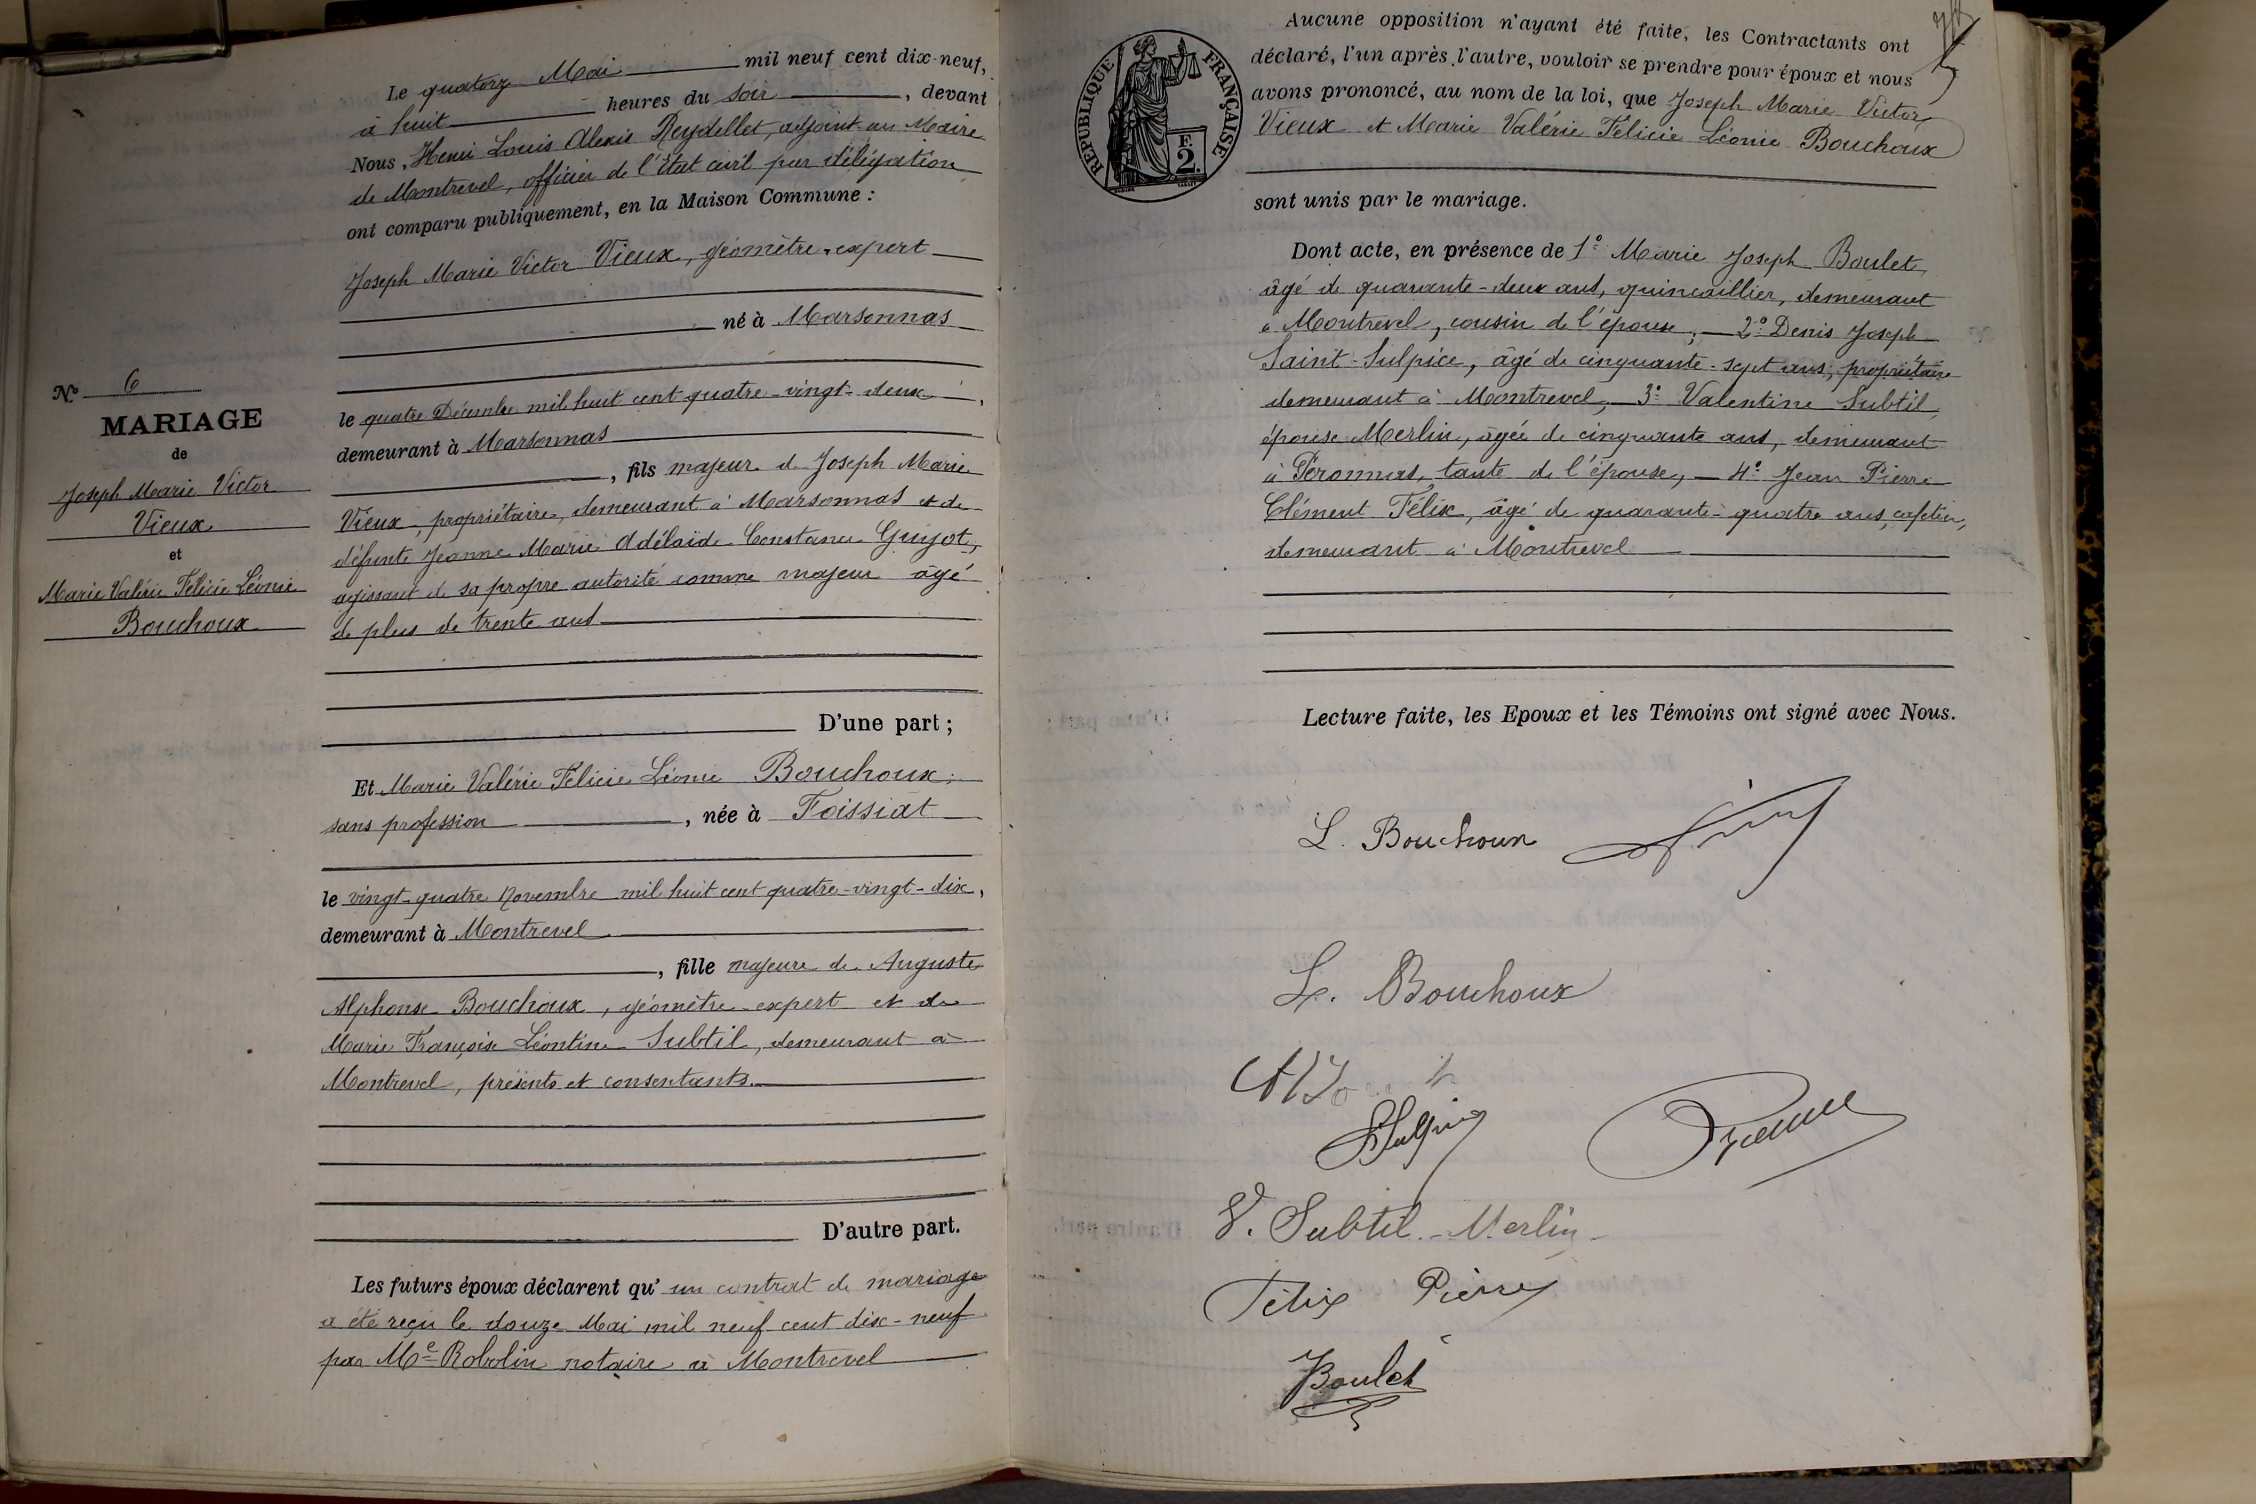 Le quatorze Mai mil neuf cent dix-neuf,
à huit heures du soir, devant
Nous, Henri Louis Alexis Reydellet, adjoint au Maire
de Montrevel, officier de l'Etat civil par délégation
ont comparu publiquement, en la Maison Commune :
Joseph Marie Victor Vieux, géomètre-expert
né à Marsonnas
le quatre Décembre mil huit cent quatre-vingt-deux,
demeurant à Marsonnas
, fils majeur de Joseph Marie
Vieux, propriétaire, demeurant à Marsonnas et de
défunte Jeanne Marie Adélaïde Constance Guyot,
agissant de sa propre autorité comme majeur âgé
de plus de trente ans
D'une part ;
Et Marie Valérie Félicie Léonie Bouchoux,
sans profession, née à Foissiat
le vingt-quatre Novembre mil huit cent quatre-vingt-dix,
demeurant à Montrevel
, fille majeure de Auguste
Alphonse Bouchoux, géomètre-expert et de
Marie Françoise Léontine Subtil, demeurant à
Montrevel, présents et consentants.
D'autre part.
Les futurs époux déclarent qu'un contrat de mariage
a été reçu le douze Mai mil neuf cent dix-neuf
par Me Robolin notaire à Montrevel
No 6
MARIAGE
de
Joseph Marie Victor
Vieux
et
Marie Valérie Félicie Léonie
Bouchoux
RÉPUBLIQUE FRANÇAISE
F.
2.
Aucune opposition n'ayant été faite, les Contractants ont
déclaré, l'un après l'autre, vouloir se prendre pour époux et nous
avons prononcé, au nom de la loi, que Joseph Marie Victor
Vieux et Marie Valérie Félicie Léonie Bouchoux
sont unis par le mariage.
Dont acte, en présence de 1o Marie Joseph Boulet,
âgé de quarante-deux ans, quincaillier, demeurant
à Montrevel, cousin de l'épouse, 2o Denis Joseph
Saint-Sulpice, âgé de cinquante-sept ans, propriétaire
demeurant à Montrevel, 3o Valentine Subtil,
épouse Merlin, âgée de cinquante ans, demeurant
à Péronnas, tante de l'épouse, 4o Jean Pierre
Clément Félix, âgé de quarante-quatre ans, cafetier,
demeurant à Montrevel
Lecture faite, les Epoux et les Témoins ont signé avec Nous.
L. Bouchoux
L. Bouchoux
V. Subtil-Merlin
Félix Pierre
Boulet